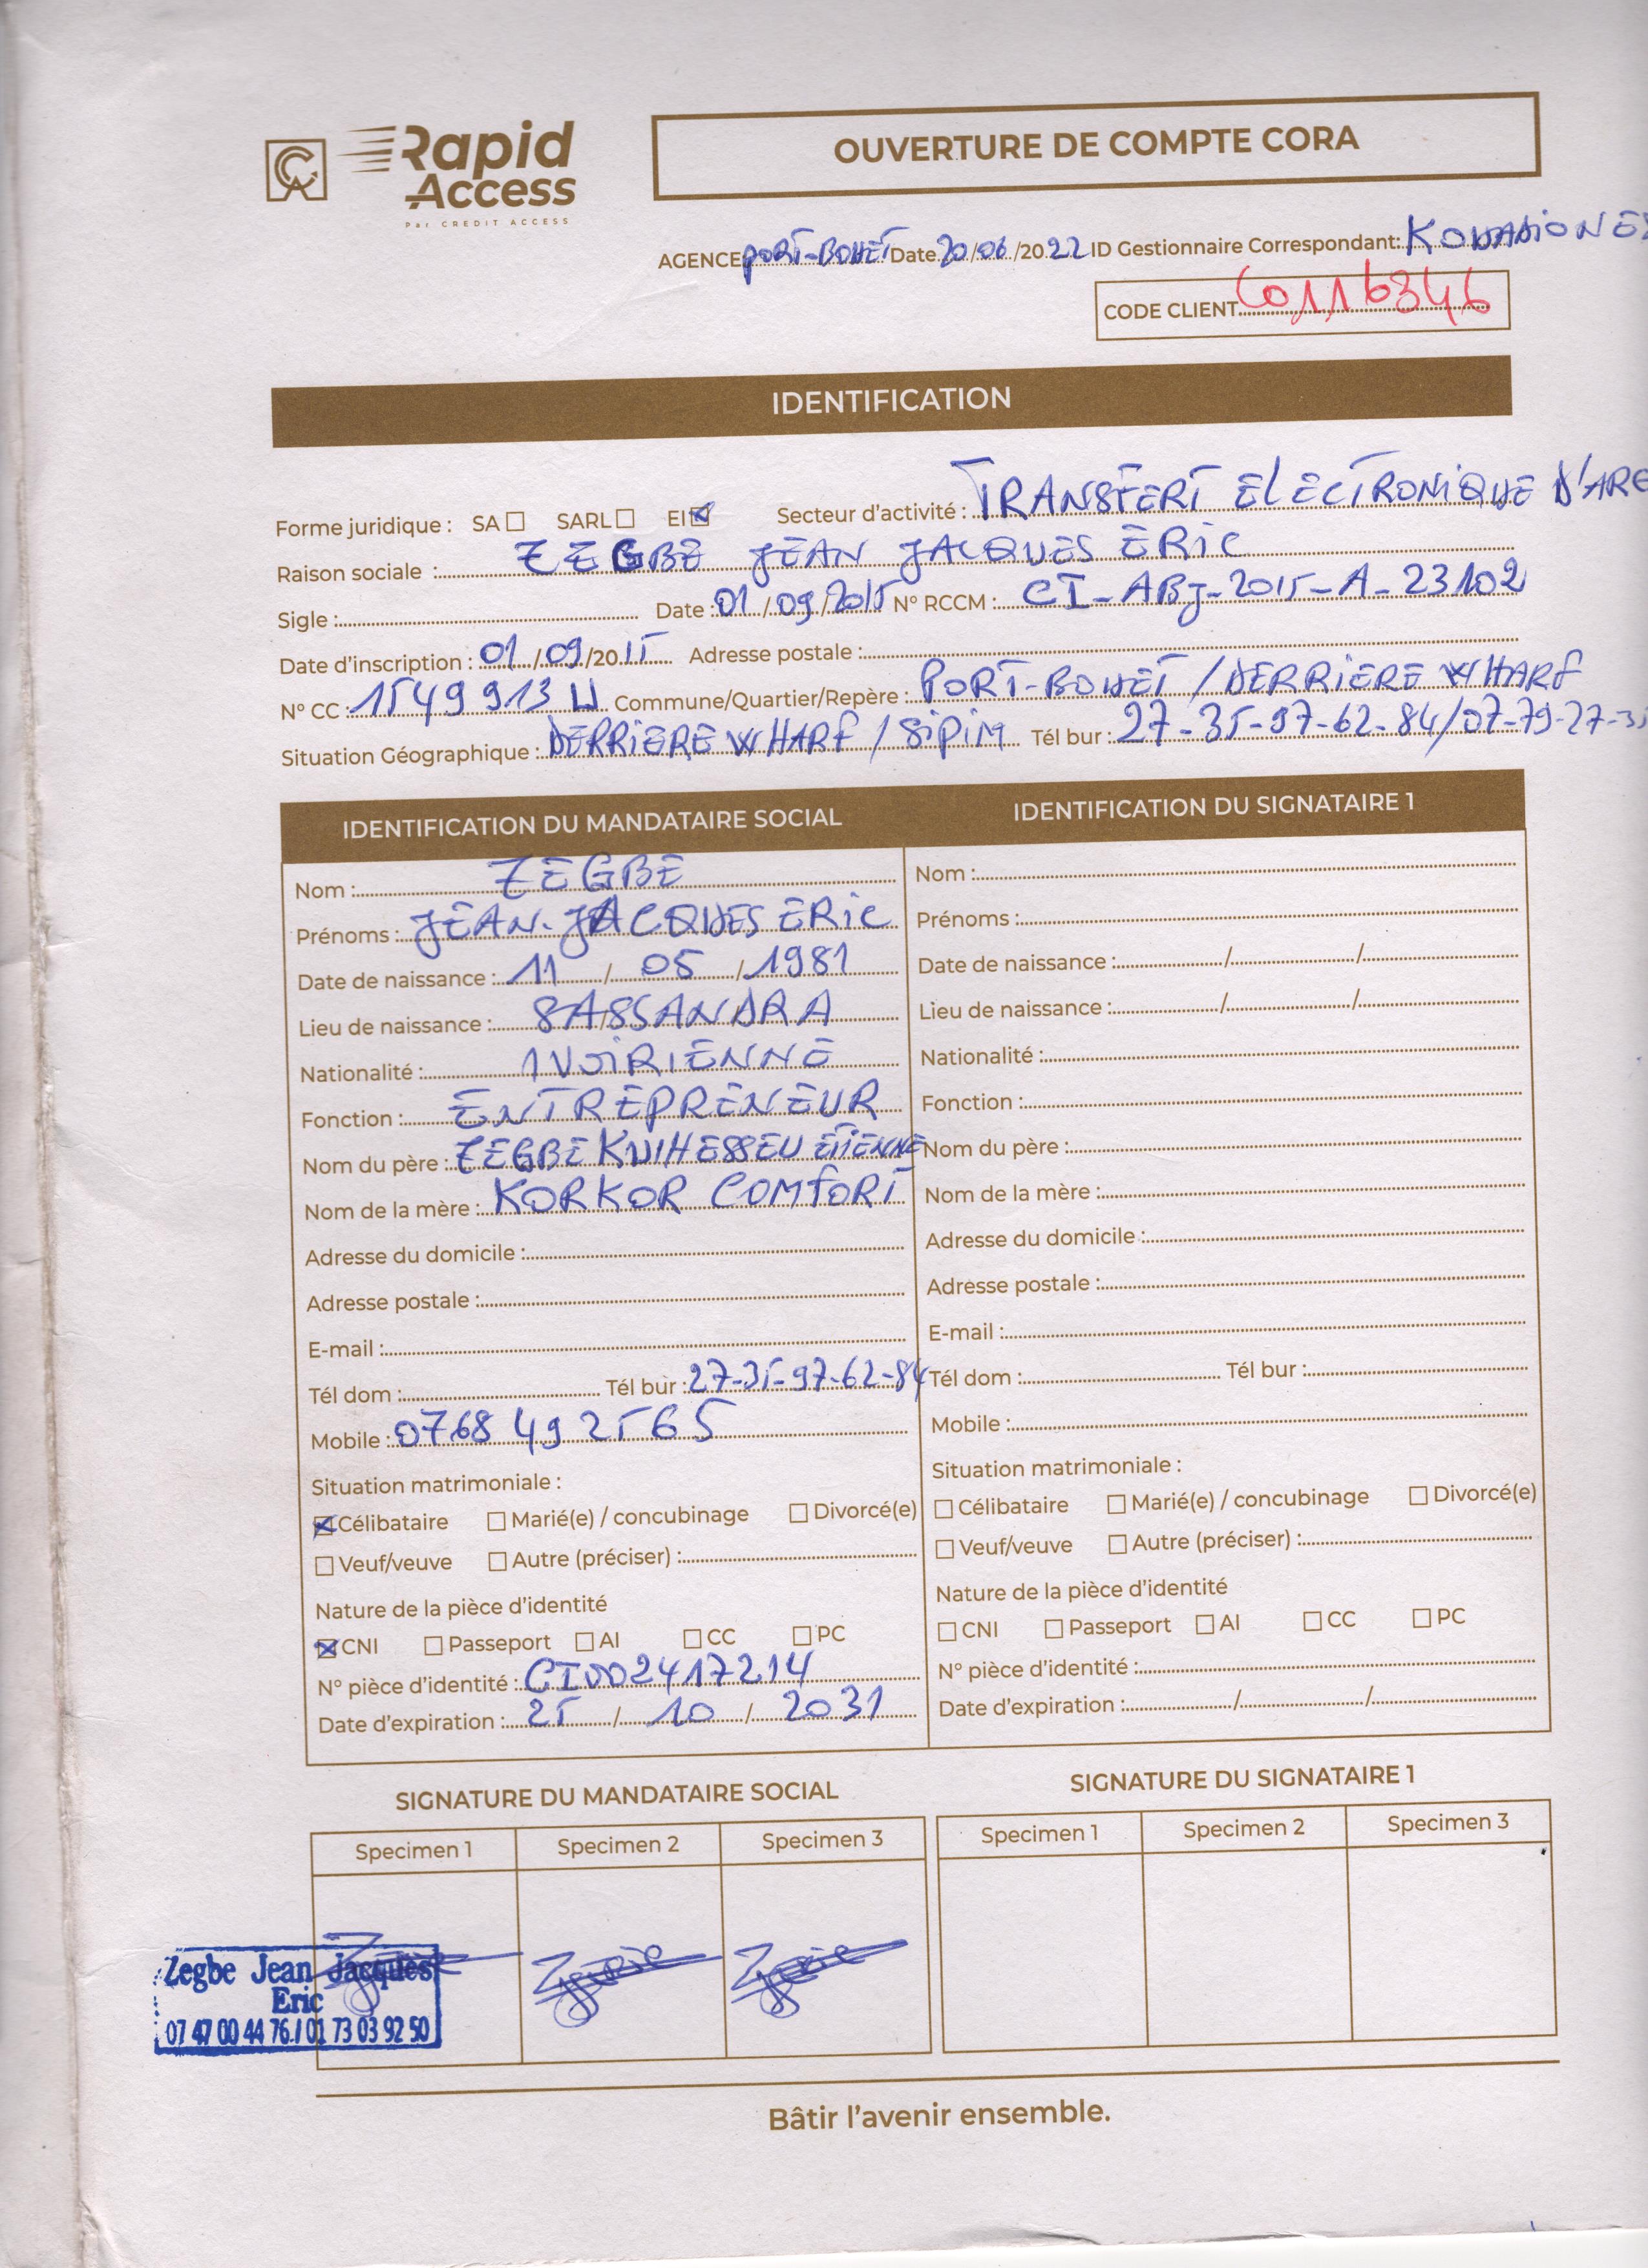 Rapid Access
Par CREDIT ACCESS
OUVERTURE DE COMPTE CORA
AGENCE PORT-BOUET Date 20/06/2022 ID Gestionnaire Correspondant:
CODE CLIENT C0116346
IDENTIFICATION
Forme juridique : SA ☐ SARL ☐ EI ☒ Secteur d'activité : TRANSFERT ELECTRONIQUE D'ARG
Raison sociale : ZEGBE JEAN JACQUES ERIC
Sigle : Date : 01/09/2015 N° RCCM : CI-ABJ-2015-A-23102
Date d'inscription : 01/09/2015 Adresse postale :
N° CC : 1549913 U Commune/Quartier/Repère : PORT-BOUET/DERRIERE WHARF
Situation Géographique : DERRIERE WHARF/SIPIM Tél bur : 27-35-97-62-84/07-79-27-
IDENTIFICATION DU MANDATAIRE SOCIAL
Nom : ZEGBE
Prénoms : JEAN-JACQUES ERIC
Date de naissance : 11/05/1981
Lieu de naissance : SASSANDRA
Nationalité : IVOIRIENNE
Fonction : ENTREPRENEUR
Nom du père : ZEGBE ETIENNE
Nom de la mère : KORKOR COMFORT
Adresse du domicile :
Adresse postale :
E-mail :
Tél dom : Tél bur : 27-35-97-62-84
Mobile : 0768 49 2565
Situation matrimoniale :
☒ Célibataire ☐ Marié(e) / concubinage ☐ Divorcé(e)
☐ Veuf/veuve ☐ Autre (préciser) :
Nature de la pièce d'identité
☒ CNI ☐ Passeport ☐ AI ☐ CC ☐ PC
N° pièce d'identité : CI002417214
Date d'expiration : 25/10/2031
IDENTIFICATION DU SIGNATAIRE 1
Nom :
Prénoms :
Date de naissance : / /
Lieu de naissance : / /
Nationalité :
Fonction :
Nom du père :
Nom de la mère :
Adresse du domicile :
Adresse postale :
E-mail :
Tél dom : Tél bur :
Mobile :
Situation matrimoniale :
☐ Célibataire ☐ Marié(e) / concubinage ☐ Divorcé(e)
☐ Veuf/veuve ☐ Autre (préciser) :
Nature de la pièce d'identité
☐ CNI ☐ Passeport ☐ AI ☐ CC ☐ PC
N° pièce d'identité :
Date d'expiration : / /
SIGNATURE DU MANDATAIRE SOCIAL
Specimen 1 Specimen 2 Specimen 3
Zegbe Jean Jacques
Eric
07 47 00 44 76 / 01 73 03 92 50
SIGNATURE DU SIGNATAIRE 1
Specimen 1 Specimen 2 Specimen 3
Bâtir l'avenir ensemble.